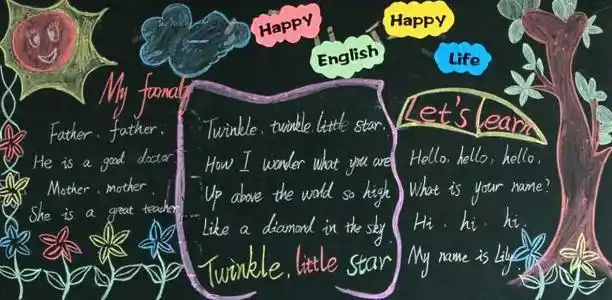 Happy
Happy
English
Life
My foomal
Father, father,
He is a good doctor
Mother, mother,
She is a great teacher
Twinkle, twinkle, little star,
How I wonder what you are
Up above the world so high
Like a diamond in the sky
Twinkle, little star
Let's Learn
Hello, hello, hello,
What is your name?
Hi, hi, hi,
My name is Lily.